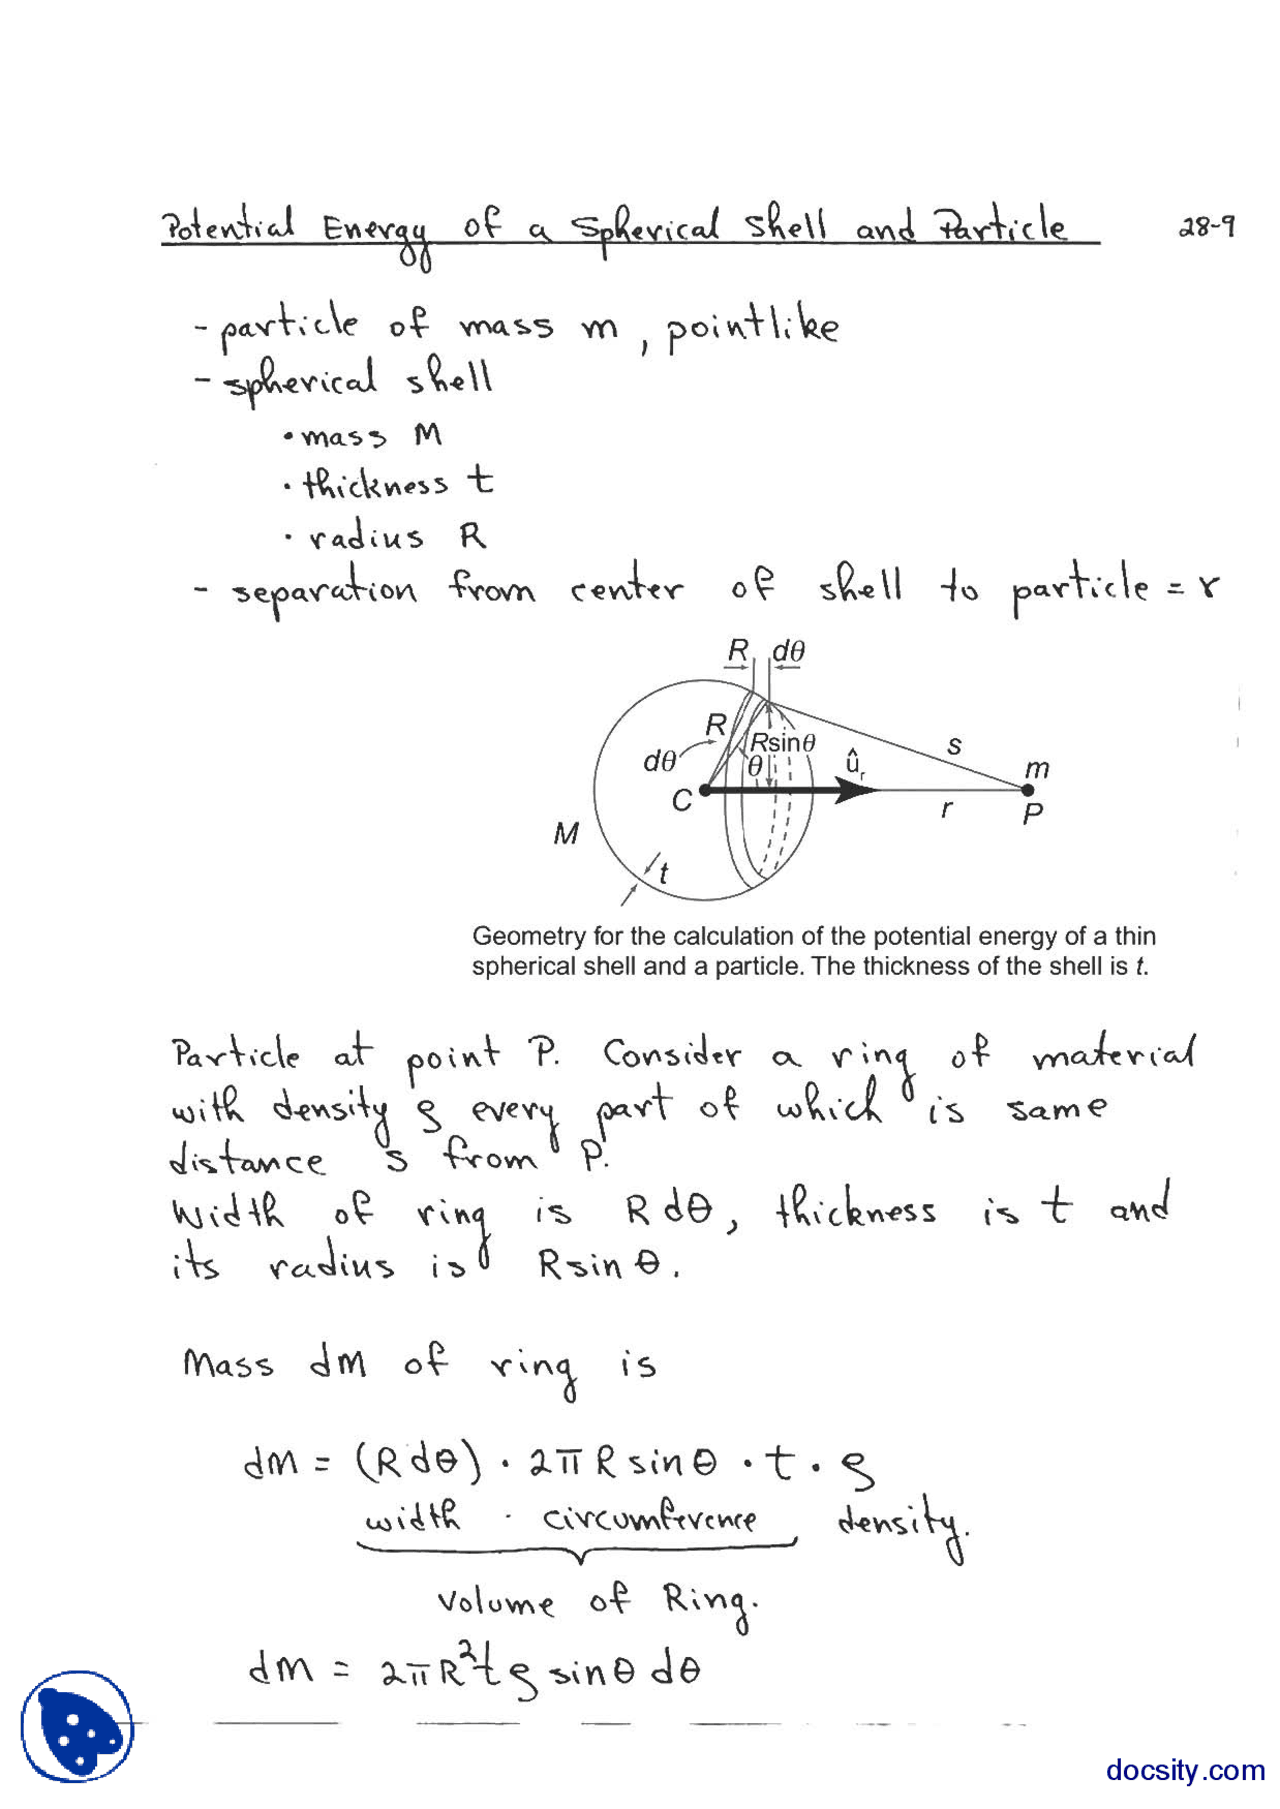 Potential Energy of a Spherical Shell and Particle 28-9
- particle of mass m, pointlike
- spherical shell
• mass M
• thickness t
• radius R
- separation from center of shell to particle = r
R dθ
R
Rsinθ
dθ
θ
s
û_r
m
C
r
P
M
t
Geometry for the calculation of the potential energy of a thin
spherical shell and a particle. The thickness of the shell is t.
Particle at point P. Consider a ring of material
with density ρ every part of which is same
distance s from P.
Width of ring is R dθ, thickness is t and
its radius is R sin θ.
Mass dM of ring is
dM = (R dθ) · 2π R sin θ · t · ρ
width · circumference density.
Volume of Ring.
dM = 2πR²tρ sinθ dθ
docsity.com